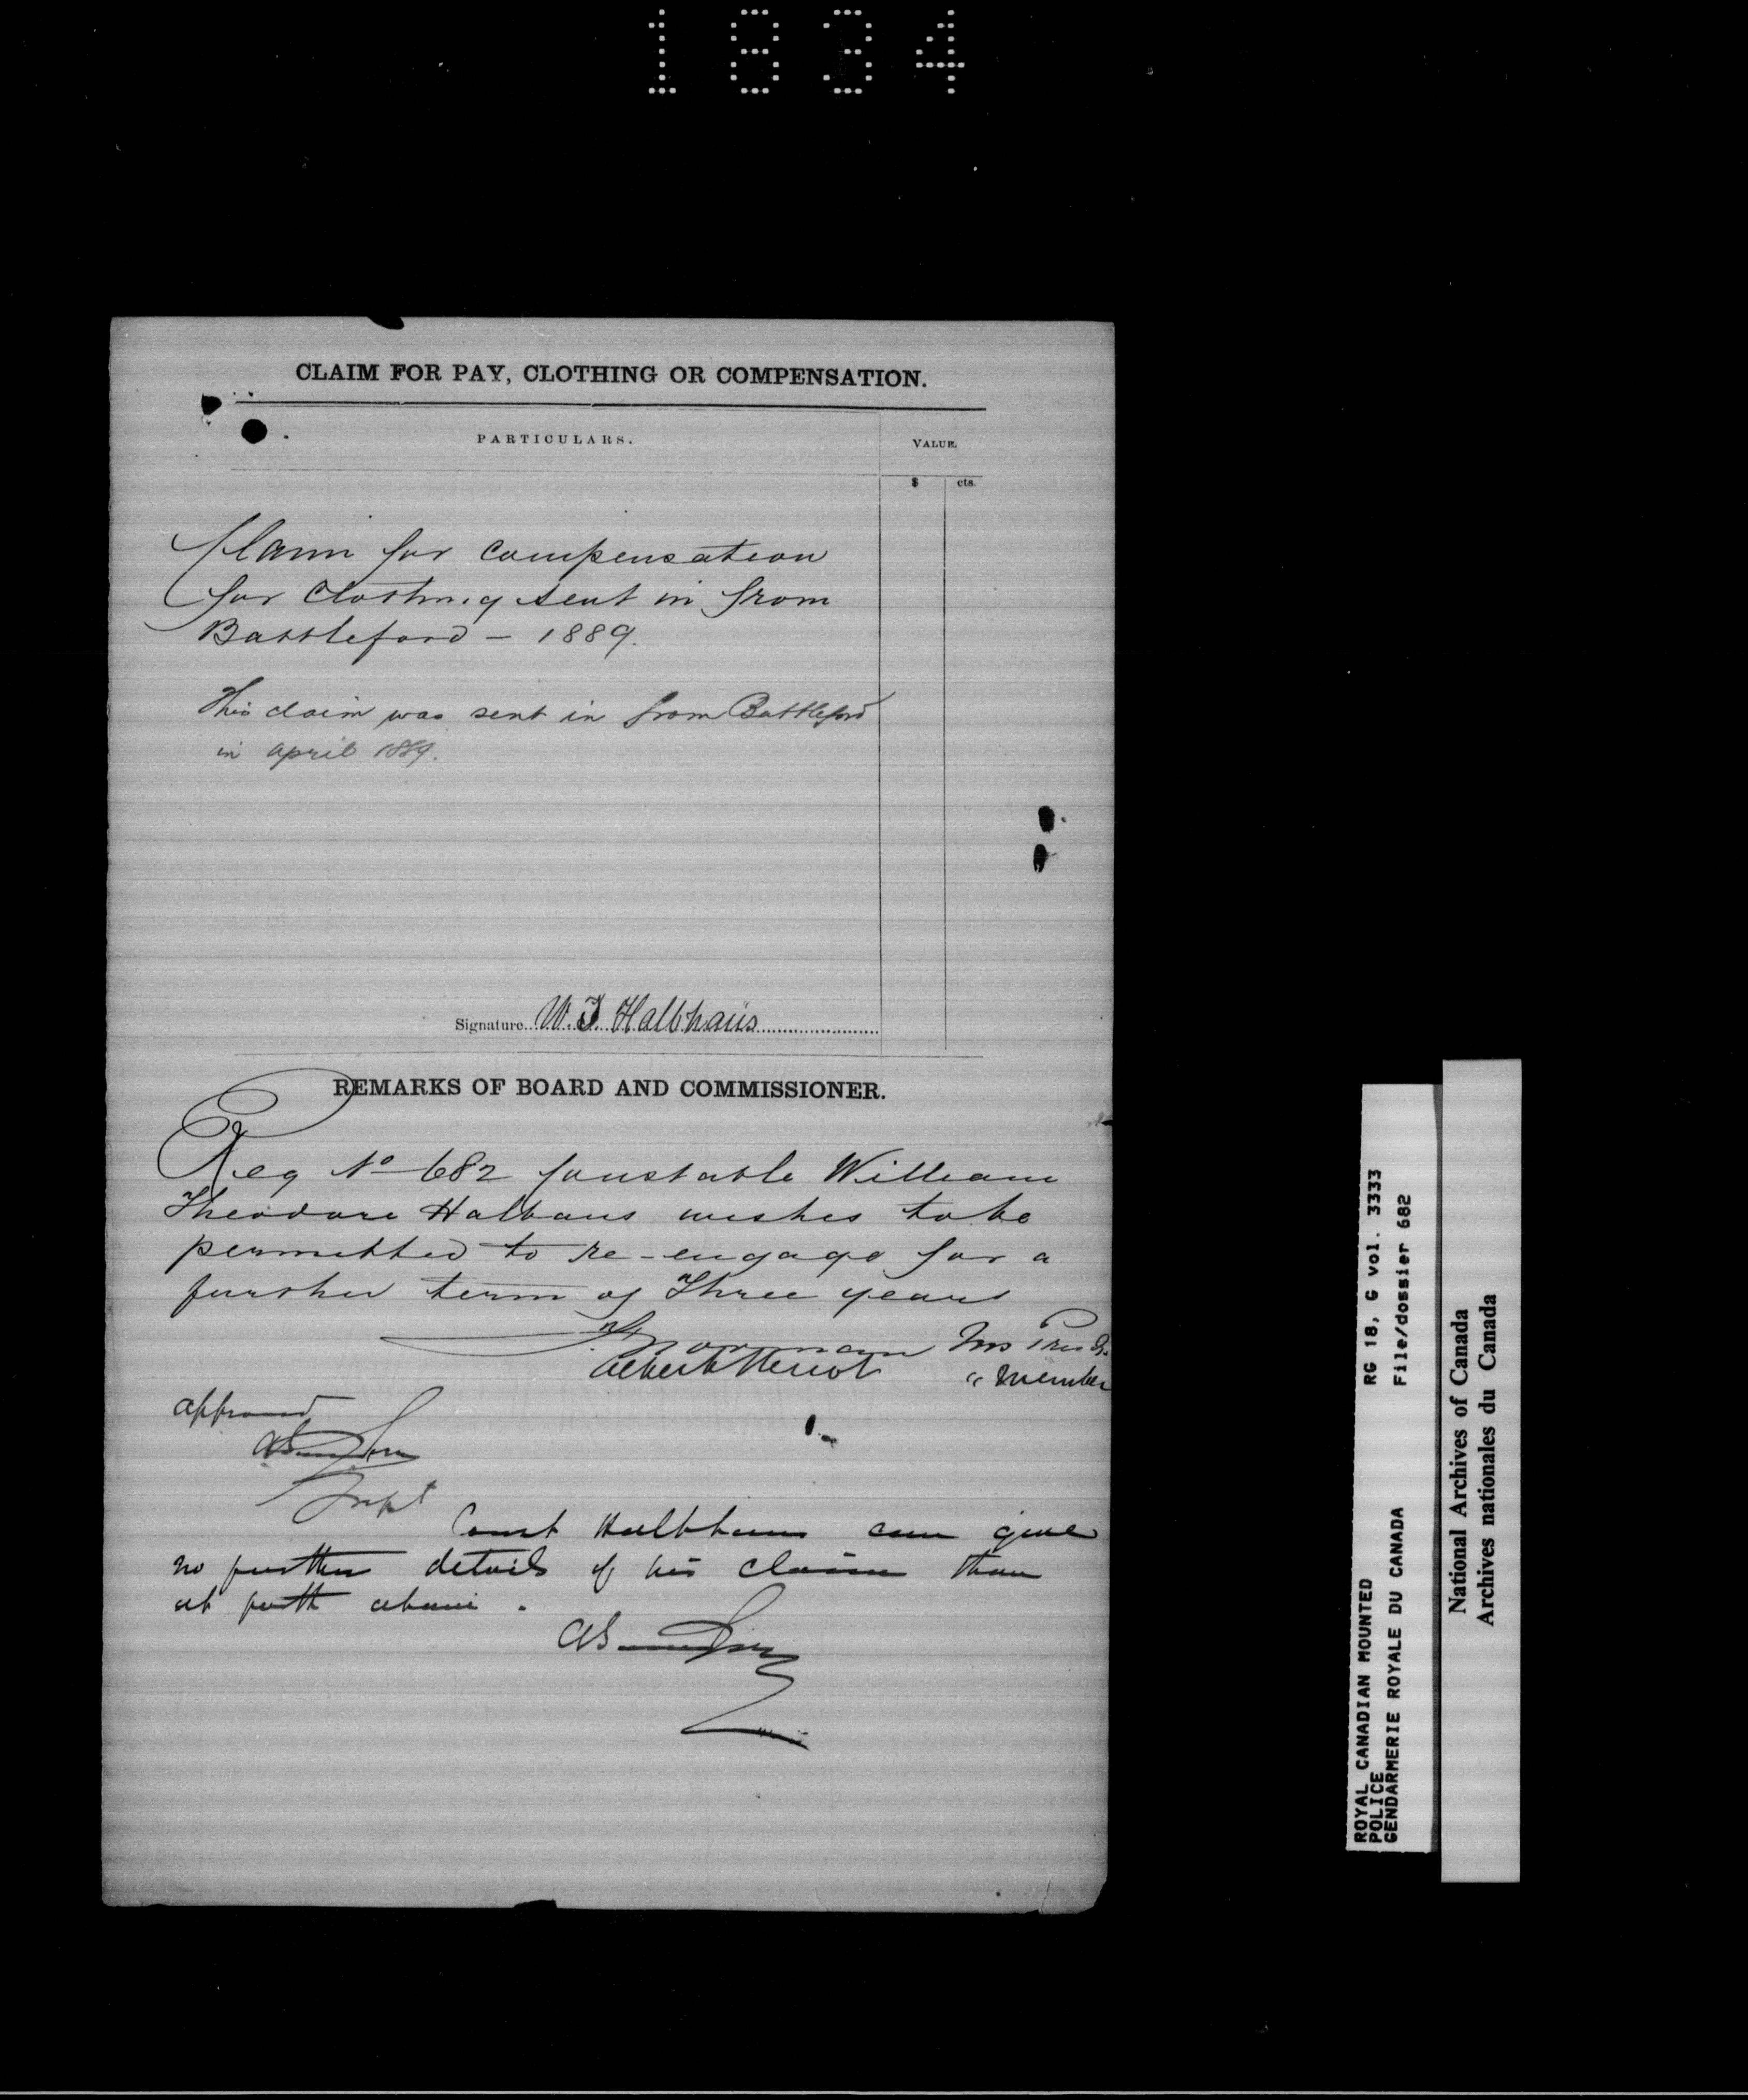 1834
CLAIM FOR PAY, CLOTHING OR COMPENSATION.
PARTICULARS.
VALUE.
$ cts.
Claim for compensation
for Clothing sent in from
Battleford - 1889.
This claim was sent in from Battleford
in april 1889.
Signature W. T. Halbhaus
REMARKS OF BOARD AND COMMISSIONER.
Reg No 682 Constable William
Theodore Halbaus wishes to be
permitted to re-engage for a
further term of Three years
Norman Ins Presdt
Albert Heriot " Member
approved
Supt
Const Halbhaus can give
no further details of his claim than
set forth above.
ROYAL CANADIAN MOUNTED RG 18, G vol. 3333
POLICE
GENDARMERIE ROYALE DU CANADA File/dossier 682
National Archives of Canada
Archives nationales du Canada